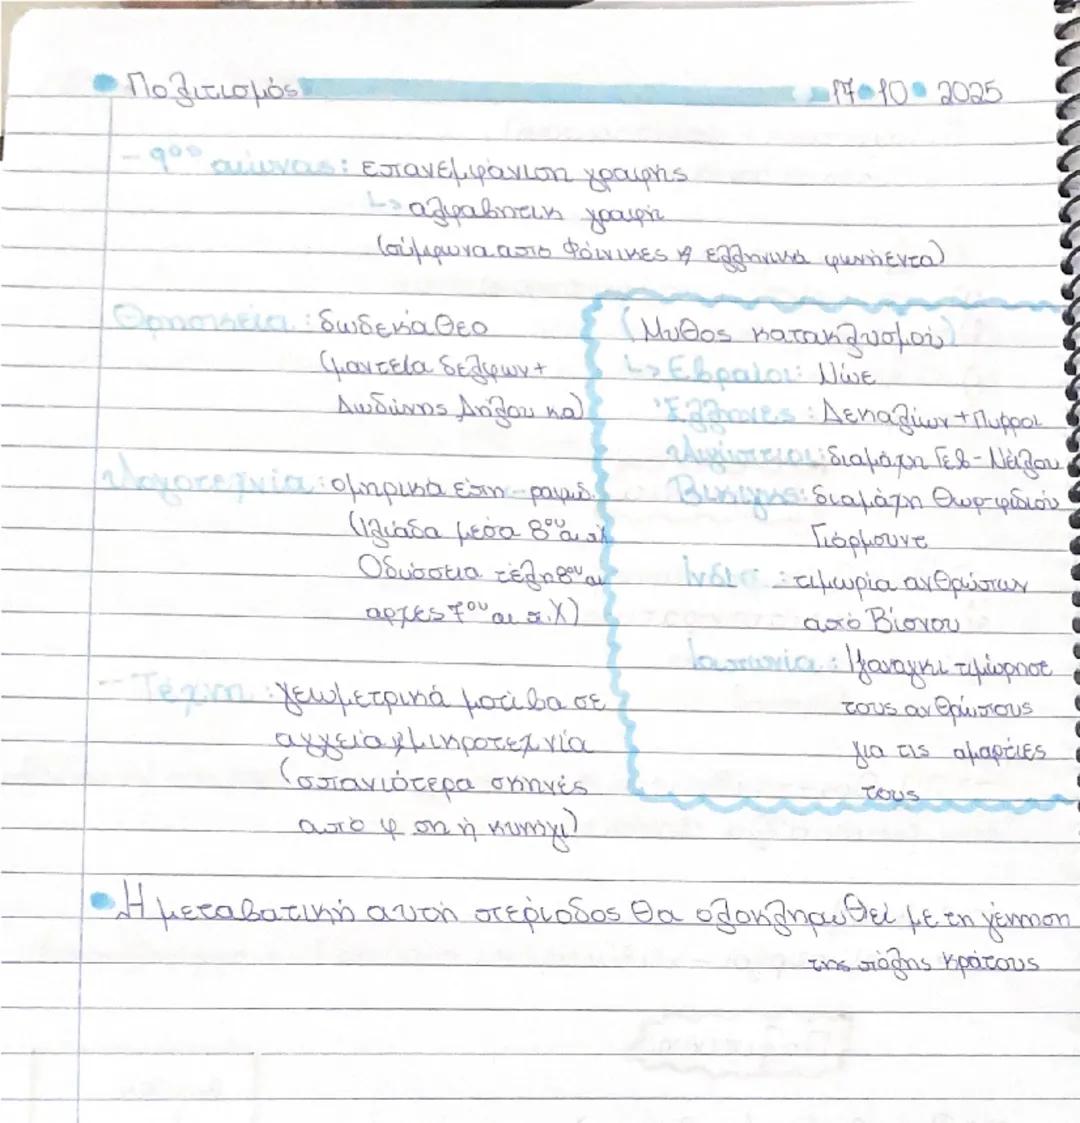 Πολιτισμός 17•10•2025
- 9ος αιώνας: επανεμφάνιση γραφής
↳ αλφαβητική γραφή
(σύμφωνα από Φοίνικες & ελληνικά φωνήεντα)
Θρησκεία: δωδεκάθεο
(μαντεία Δελφών +
Δωδώνης Δήλου κα)
Λογοτεχνία: ομηρικά έπη - ραψωδ.
(Ιλιάδα μέσα 8ου αι π.Χ
Οδύσσεια τέλη 8ου αι
αρχές 7ου αι π.Χ)
- Τέχνη: γεωμετρικά μοτίβα σε
αγγεία & μικροτεχνία
(σπανιότερα σκηνές
από φύση ή κυνήγι)
(Μύθος κατακλυσμού)
↳ Εβραίοι: Νώε
Έλληνες: Δευκαλίων + Πύρρα
Αιγύπτιοι: διαμάχη Γεβ - Νείλου
Βίκινγκς: διαμάχη Θωρ - φιδιού
Γιόρμουντ
Ινδία: τιμωρία ανθρώπων
από Βίσνου
Ιαπωνία: Ιζαναγκι τιμώρησε
τους ανθρώπους
για τις αμαρτίες
τους
• Η μεταβατική αυτή περίοδος θα ολοκληρωθεί με τη γέννηση
της πόλης κράτους